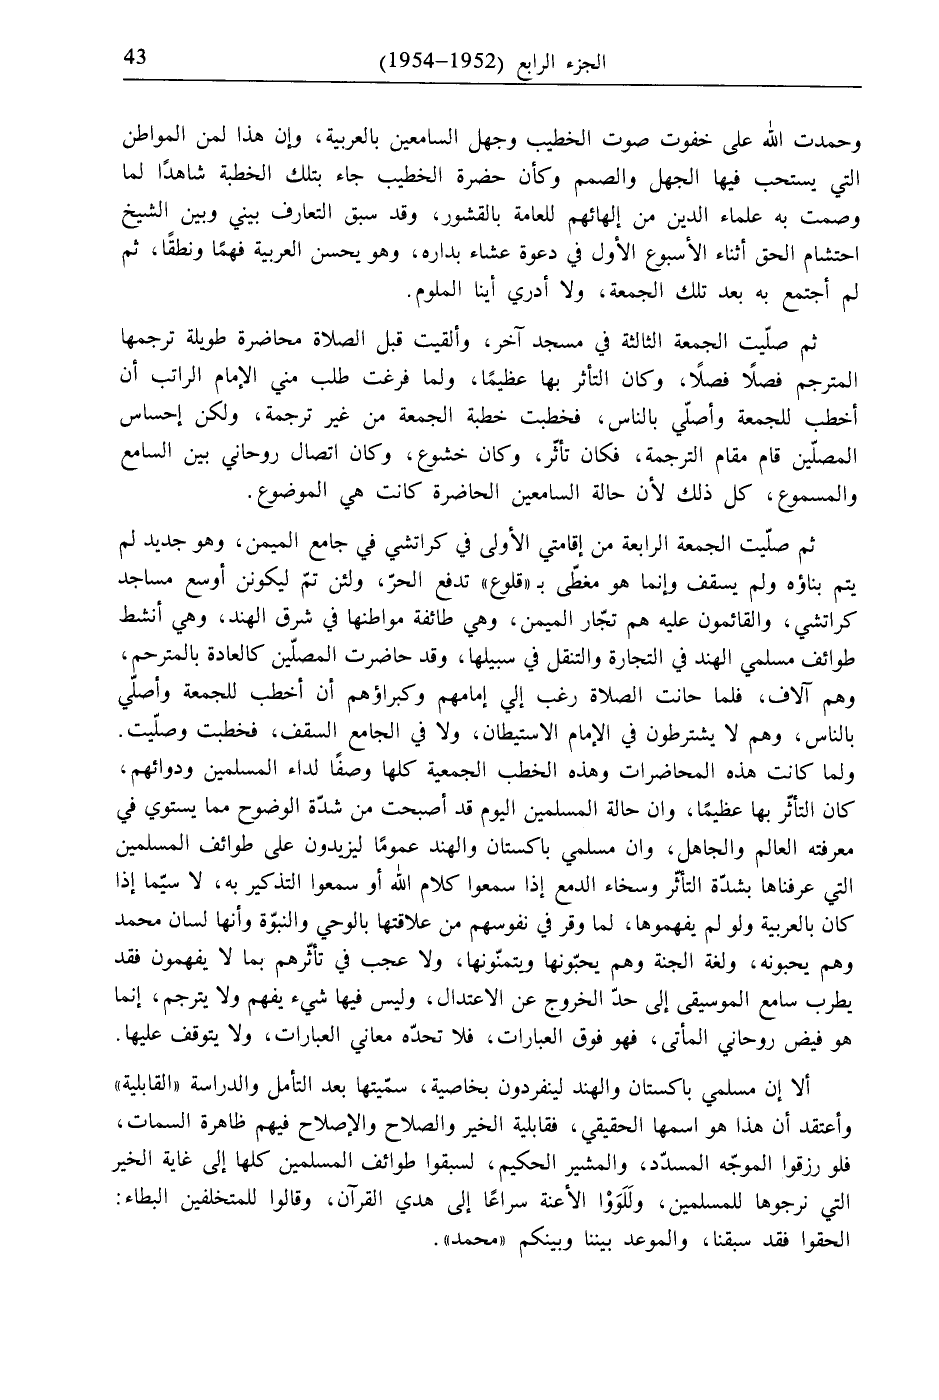 الجزء الرابع (1952–1954) 43
وحمدت الله على خفوت صوت الخطيب وجهل السامعين بالعربية، وإن هذا لمن المواطن
التي يستحب فيها الجهل والصمم وكأن حضرة الخطيب جاء بتلك الخطبة شاهدًا لما
وصمت به علماء الدين من إلهائهم للعامة بالقشور، وقد سبق التعارف بيني وبين الشيخ
احتشام الحق أثناء الأسبوع الأول في دعوة عشاء بداره، وهو يحسن العربية فهمًا ونطقًا، ثم
لم أجتمع به بعد تلك الجمعة، ولا أدري أينا الملوم.
ثم صلّيت الجمعة الثالثة في مسجد آخر، وألقيت قبل الصلاة محاضرة طويلة ترجمها
المترجم فصلًا فصلًا، وكان التأثر بها عظيمًا، ولما فرغت طلب مني الإمام الراتب أن
أخطب للجمعة وأصلّي بالناس، فخطبت خطبة الجمعة من غير ترجمة، ولكن إحساس
المصلّين قام مقام الترجمة، فكان تأثّر، وكان خشوع، وكان اتصال روحاني بين السامع
والمسموع، كل ذلك لأن حالة السامعين الحاضرة كانت هي الموضوع.
ثم صلّيت الجمعة الرابعة من إقامتي الأولى في كراتشي في جامع الميمن، وهو جديد لم
يتم بناؤه ولم يسقف وإنما هو مغطّى بـ «قلوع» تدفع الحرّ، ولئن تمّ ليكونن أوسع مساجد
كراتشي، والقائمون عليه هم تجّار الميمن، وهي طائفة مواطنها في شرق الهند، وهي أنشط
طوائف مسلمي الهند في التجارة والتنقل في سبيلها، وقد حاضرت المصلّين كالعادة بالمترحم،
وهم آلاف، فلما حانت الصلاة رغب إلي إمامهم وكبراؤهم أن أخطب للجمعة وأصلّي
بالناس، وهم لا يشترطون في الإمام الاستيطان، ولا في الجامع السقف، فخطبت وصلّيت.
ولما كانت هذه المحاضرات وهذه الخطب الجمعية كلها وصفًا لداء المسلمين ودوائهم،
كان التأثّر بها عظيمًا، وان حالة المسلمين اليوم قد أصبحت من شدّة الوضوح مما يستوي في
معرفته العالم والجاهل، وان مسلمي باكستان والهند عمومًا ليزيدون على طوائف المسلمين
التي عرفناها بشدّة التأثّر وسخاء الدمع إذا سمعوا كلام الله أو سمعوا التذكير به، لا سيّما إذا
كان بالعربية ولو لم يفهموها، لما وقر في نفوسهم من علاقتها بالوحي والنبوّة وأنها لسان محمد
وهم يحبونه، ولغة الجنة وهم يحبّونها ويتمنّونها، ولا عجب في تأثّرهم بما لا يفهمون فقد
يطرب سامع الموسيقى إلى حدّ الخروج عن الاعتدال، وليس فيها شيء يفهم ولا يترجم، إنما
هو فيض روحاني المأتى، فهو فوق العبارات، فلا تحدّه معاني العبارات، ولا يتوقف عليها.
ألا إن مسلمي باكستان والهند لينفردون بخاصية، سمّيتها بعد التأمل والدراسة «القابلية»
وأعتقد أن هذا هو اسمها الحقيقي، فقابلية الخير والصلاح والإصلاح فيهم ظاهرة السمات،
فلو رزقوا الموجّه المسدّد، والمشير الحكيم، لسبقوا طوائف المسلمين كلها إلى غاية الخير
التي نرجوها للمسلمين، ولَلَوَوْا الأعنة سراعًا إلى هدي القرآن، وقالوا للمتخلفين البطاء:
الحقوا فقد سبقنا، والموعد بيننا وبينكم «محمد».